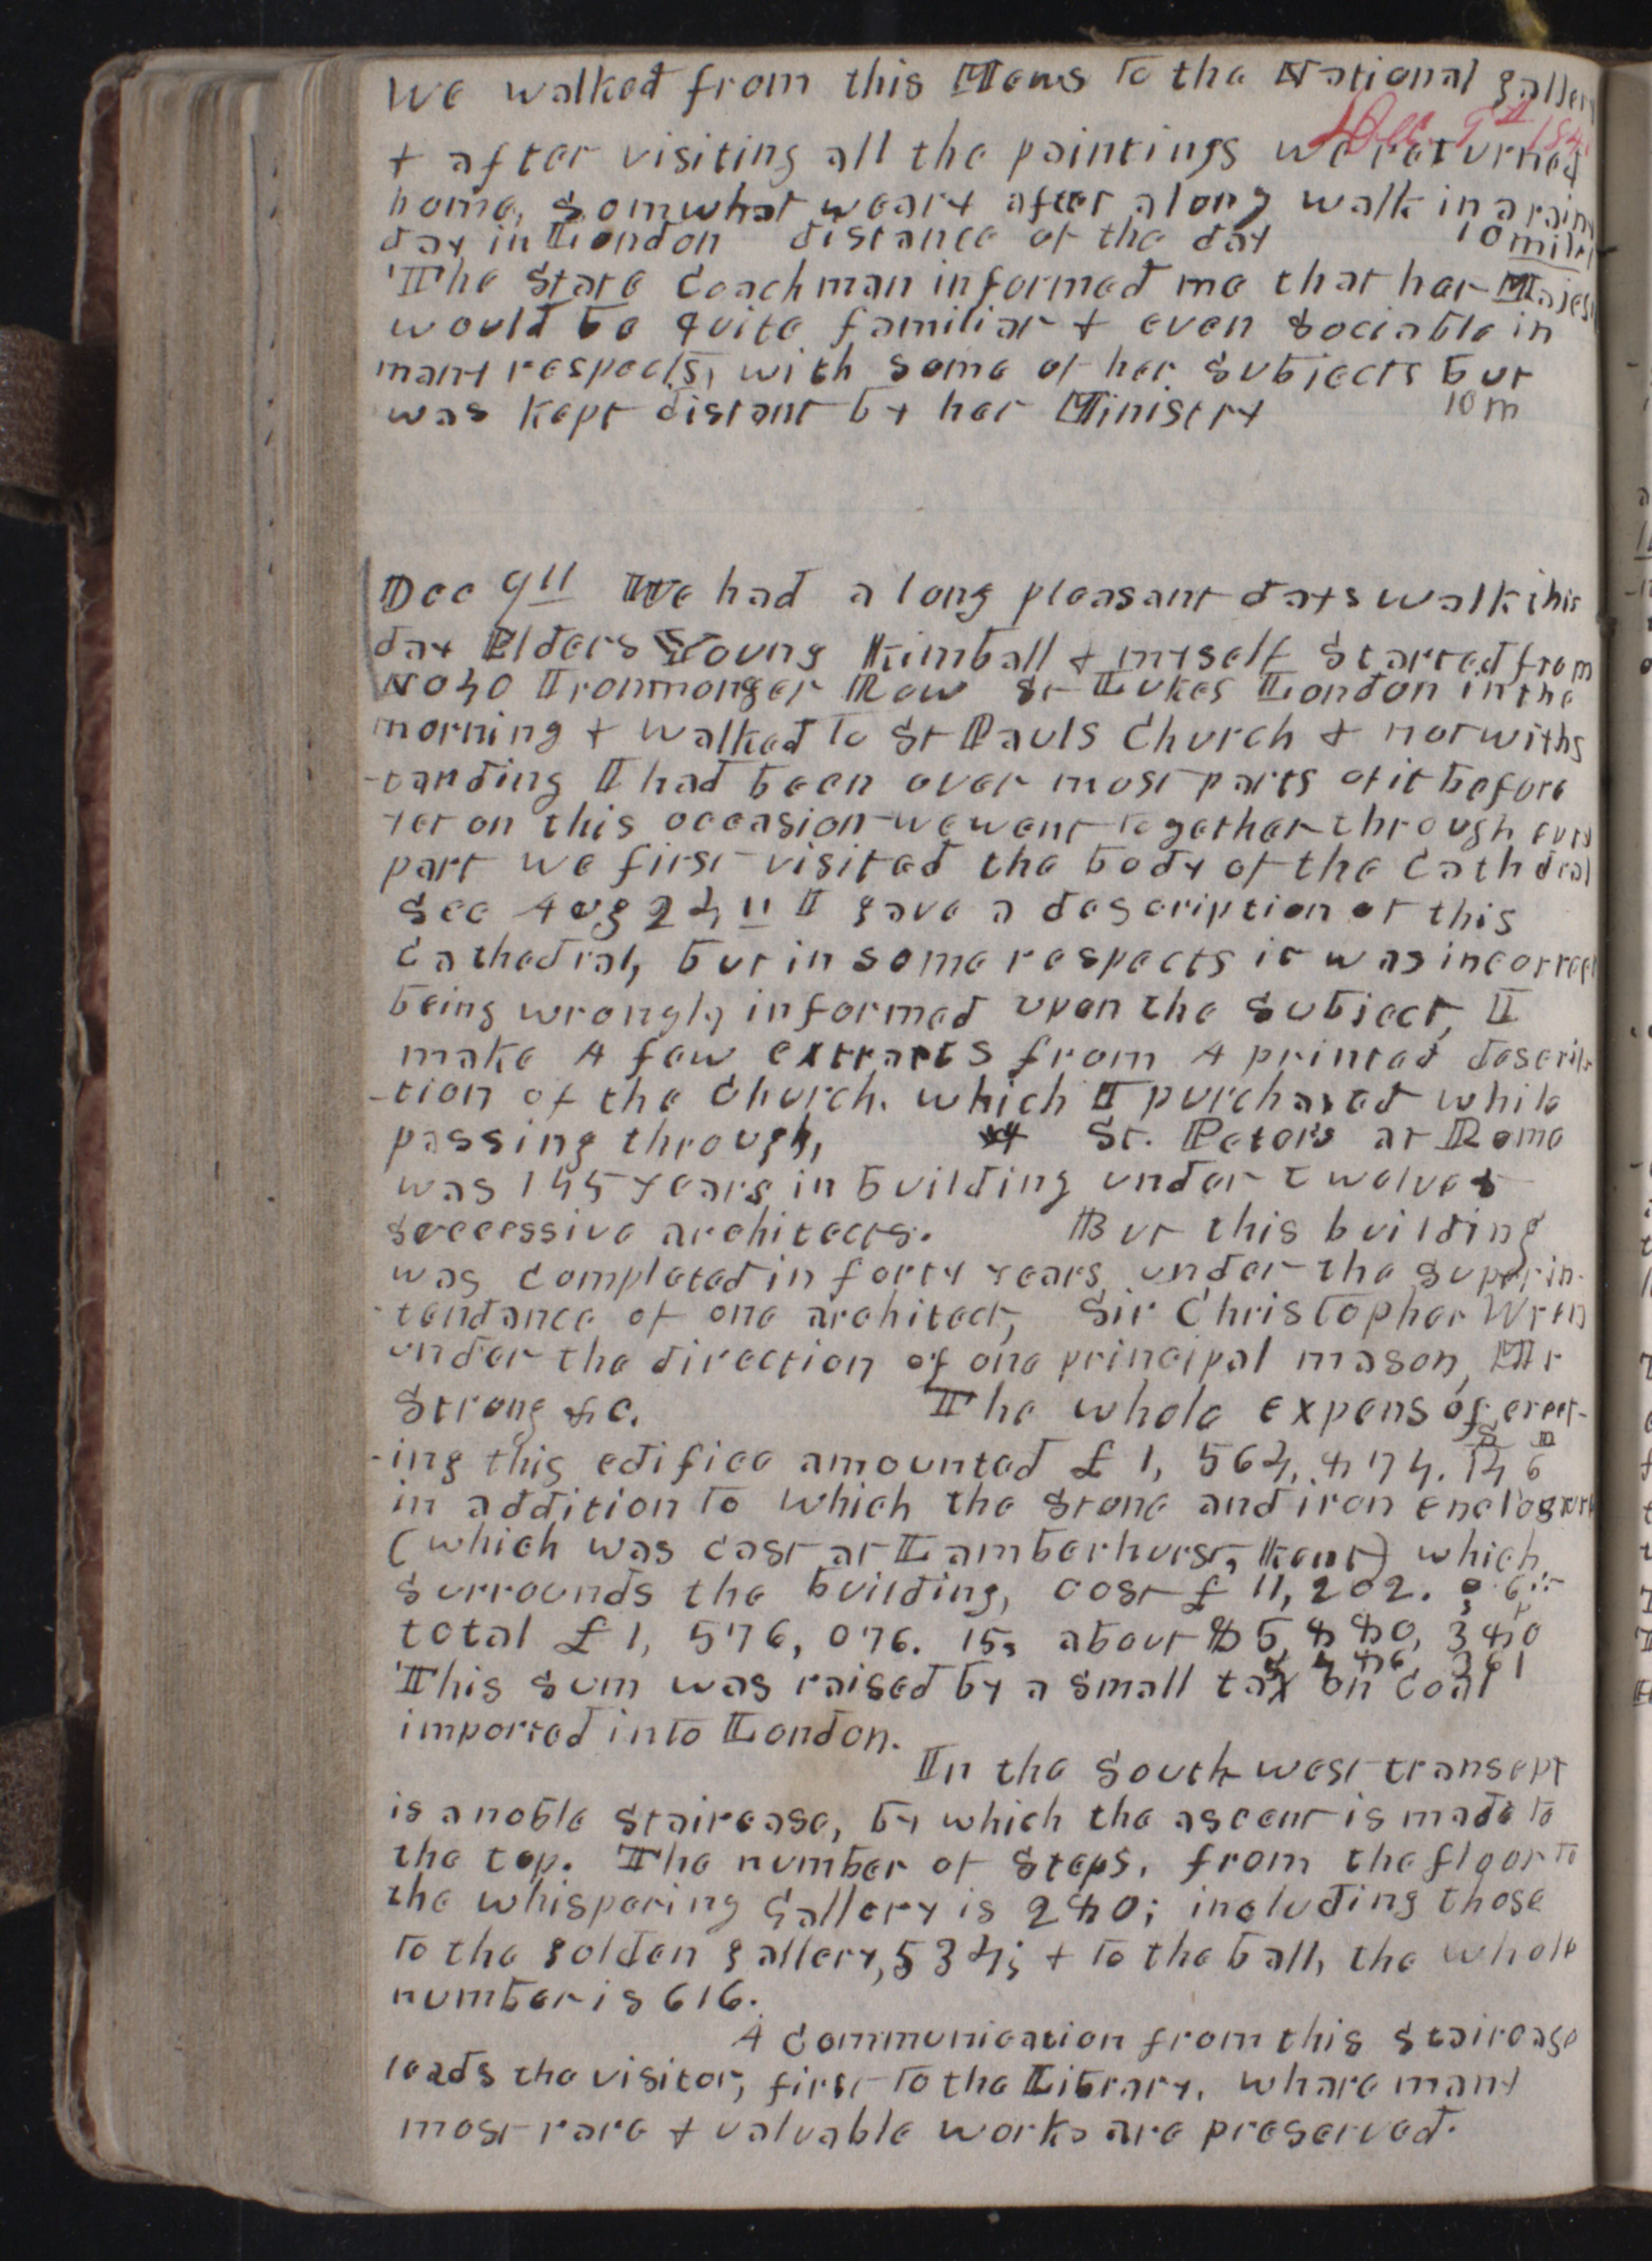 We walked from this Mews to the National gallery
Dec. 9th 184
& after visiting all the paintings we returned
home, somwhat weary after a long walk in a rainy
day in London distance of the day 10 miles
The State Coachman informed me that her Majesty
would be quite familiar & even sociable in
many respects, with some of her subjects but
was kept distant by her Ministry 10 m
Dec 9th We had a long pleasant days walk this
day Elders Young Kimball & myself started from
No 40 Ironmonger Row St Lukes London in the
morning & walked to St Pauls Church & notwiths
-tanding I had been over most parts of it before
yet on this occasion we went together through evry
part we first visited the body of the Cathdral
See Aug 24th I gave a description of this
Cathedral, but in some respects it was incorrect
being wrongly informed upon the subject, I
make A few extracts from A printed descrip
-tion of the Church. which I purchased while
passing through, St. Peters at Rome
was 145 years in building under twelves
successive architects. But this building
was completed in forty years under the superin-
tendance of one architect, Sir Christopher Wren
under the direction of one principal mason, Mr
Strong &c. The whole expens of erect-
-ing this edifice amounted £ 1, 564, 874. 14 6
in addition to which the stone and iron enclosure
(which was cast at Lamberhurst, Kent) which
surrounds the building, cost £ 11,202. 0. 6.
total £ 1, 576, 076. 15, about $ 6, 880, 380
This sum was raised by a small tax on coal
imported into London.
In the South west transept
is a noble staircase, by which the ascent is made to
the top. The number of steps, from the floor to
the whispering gallery is 280; including those
to the golden gallery, 534; & to the ball, the whole
number is 616.
A communication from this staircase
leads the visitor, first to the Library, whare many
most rare & valuable works are preserved.